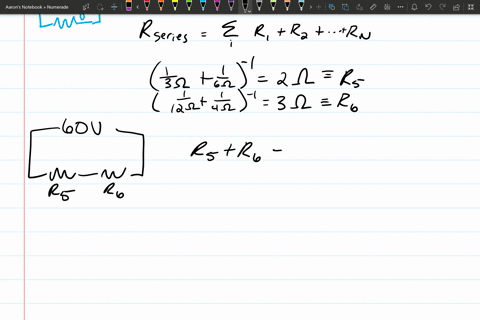 Aaron's Notebook » Numerade
R series = Σ i R₁ + R₂ + ··· + R_N
(1/3Ω + 1/6Ω)⁻¹ = 2Ω ≡ R₅
(1/12Ω + 1/4Ω)⁻¹ = 3Ω ≡ R₆
60V
R₅ + R₆ =
R₅ R₆